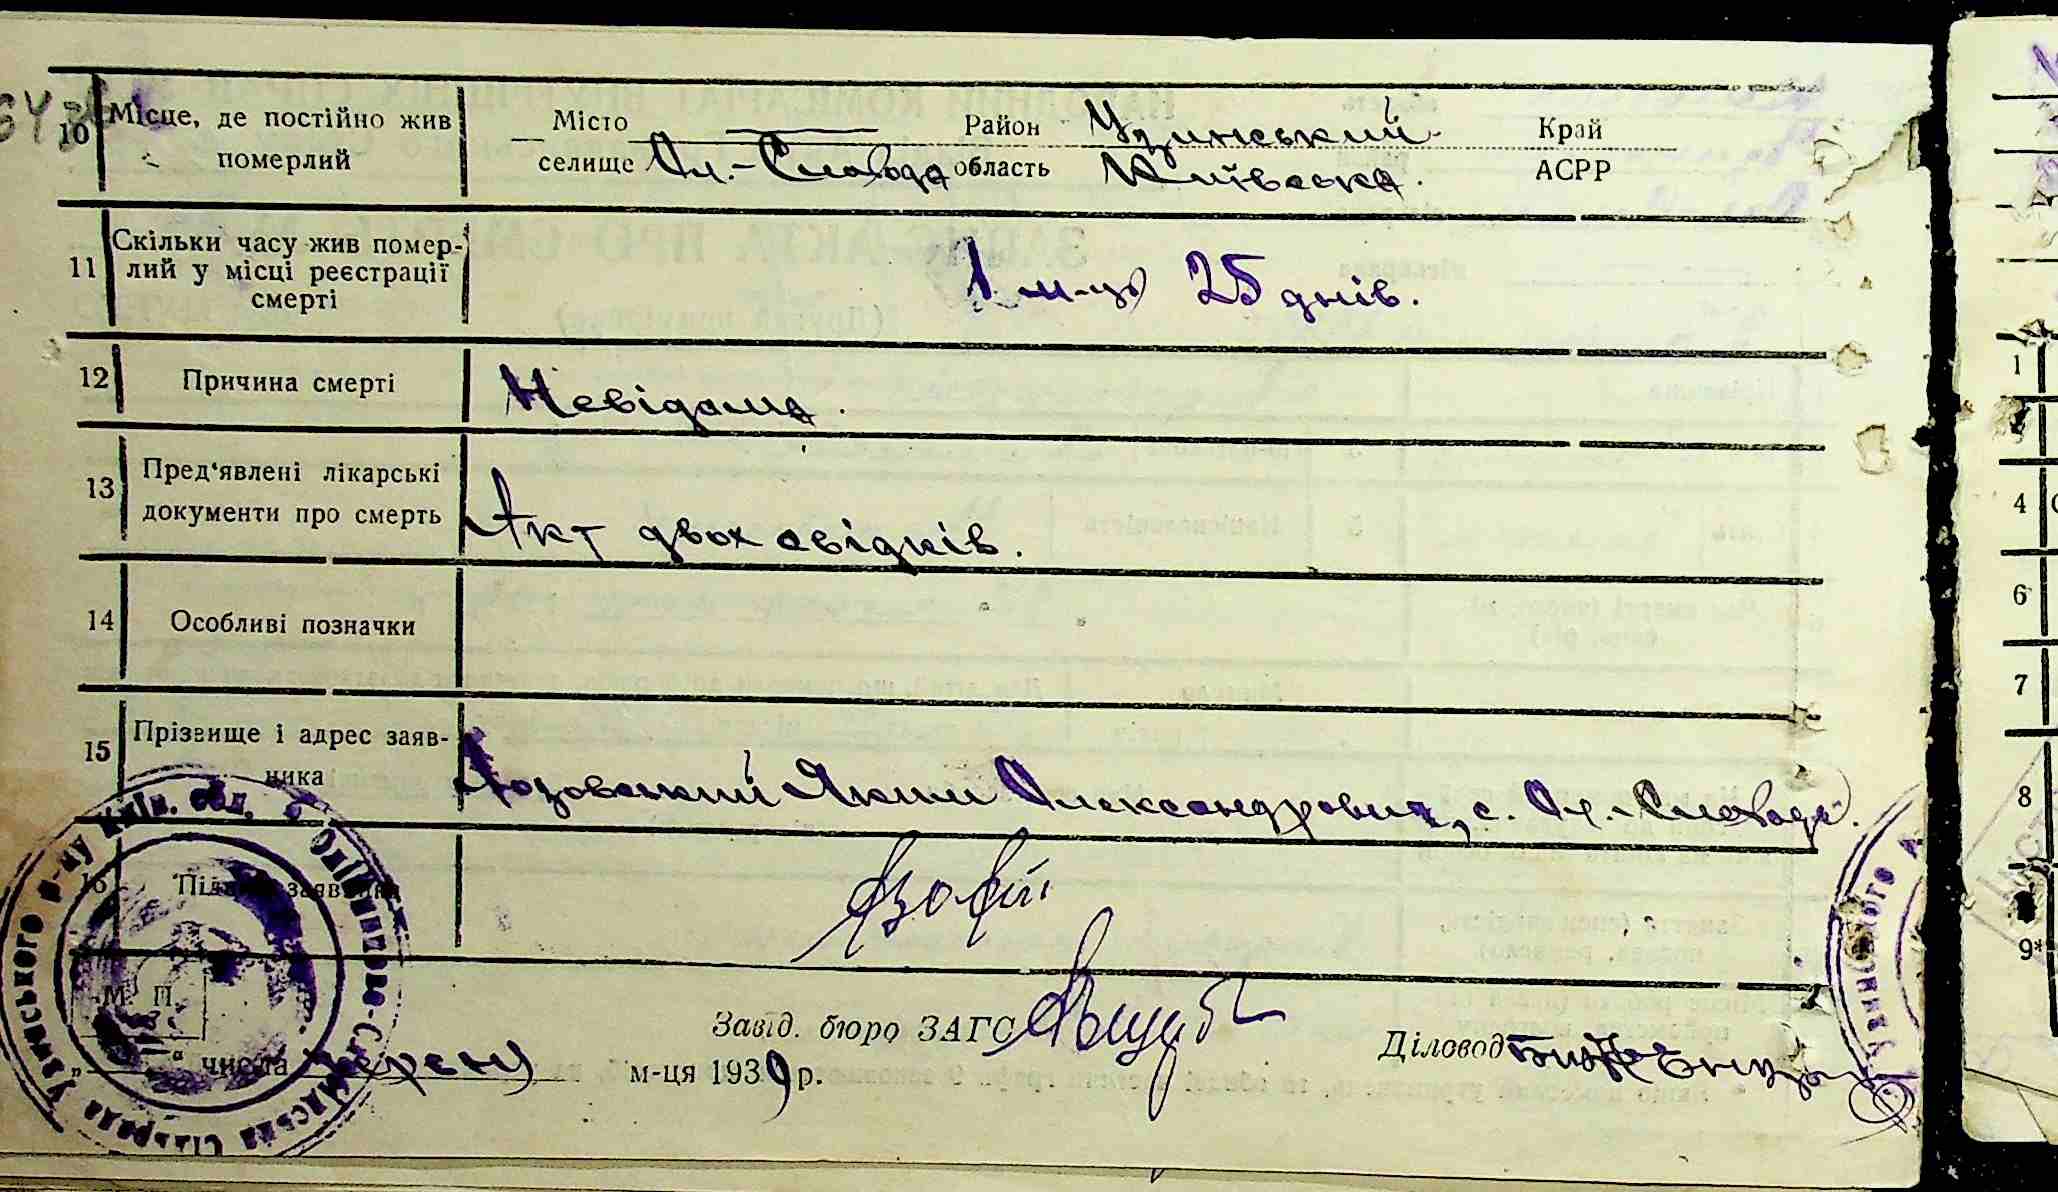 10 Місце, де постійно жив померлий
Місто — Район Узинський Край
селище Ол.-Слобода область Київська. АСРР
11 Скільки часу жив помер-
лий у місці реєстрації
смерті
1 м-ць 25 днів.
12 Причина смерті Невідома.
13 Пред'явлені лікарські
документи про смерть
Акт двох свідків.
14 Особливі позначки
15 Прізвище і адрес заяв-
ника
Лозовський Яким Олександрович, с. Ол.-Слобода.
16 Підпис заявника
М. П.
Завід. бюро ЗАГС
Діловод
" числа червня м-ця 1939 р.
1
4
6
7
8
9*